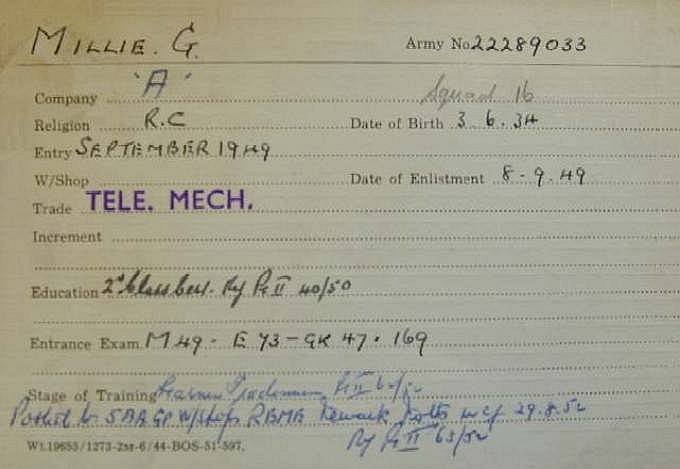 MILLIE. G. Army No 22289033
Company 'A' Squad 16
Religion R.C Date of Birth 3.6.34
Entry SEPTEMBER 1949
W/Shop Date of Enlistment 8-9.49
Trade TELE. MECH.
Increment
Education 2nd Class Cert. Ry Pt II 40/50
Entrance Exam. M 49 - E 73 - GK 47. 169
Stage of Training Pt II
Posted to W/Shops REME Newark Notts wef 29.8.52
Ry Pt II 63/52
Wt.19655/1273-2sr-6/44-BOS-51-597.